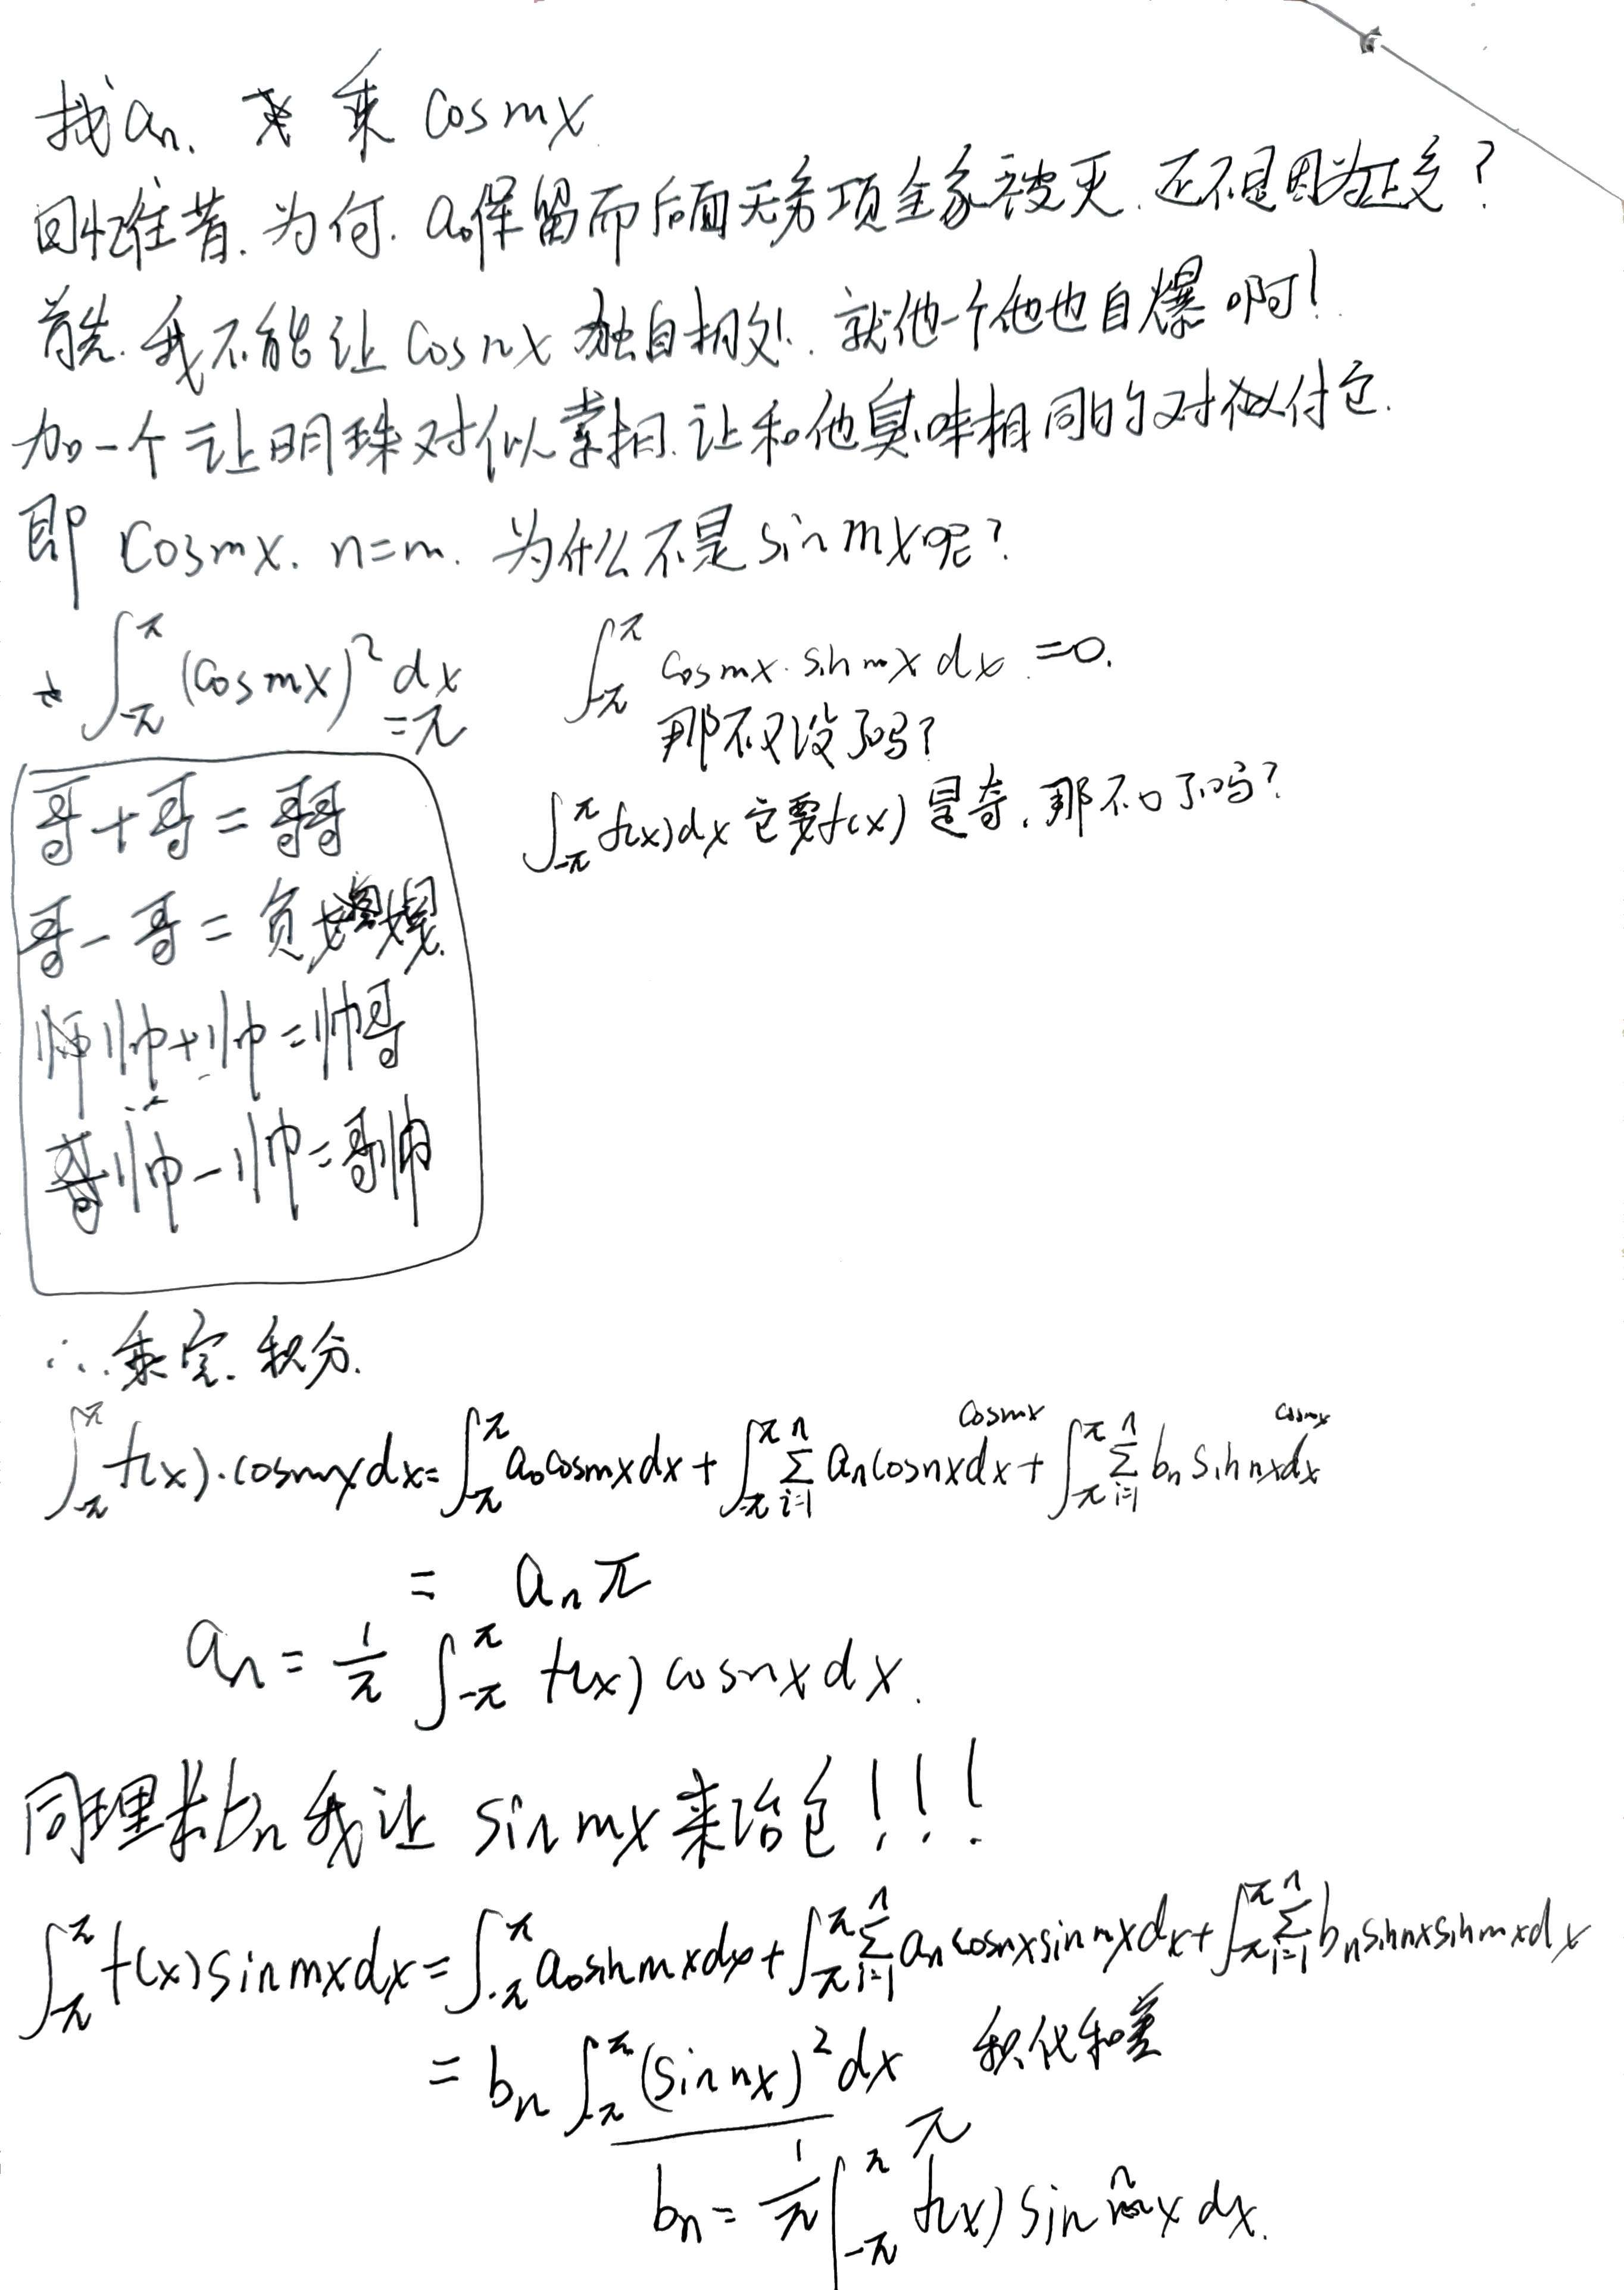 找an. 乘 cosmx
回忆谁昔. 为何. a0保留而后面无穷项全家被灭. 还不是因为正交?
首先. 我不能让 cosnx 独自相处. 就他一个他也自爆啊!
加一个让明珠对似掌相. 让和他臭味相同的对付它.
即 cosmx. n=m. 为什么不是sinmx呢?
∫_{-π}^{π} (cosmx)² dx =π  ∫_{-π}^{π} cosmx·sinmx dx =0.
那不又没了吗?
∫_{-π}^{π} f(x)dx 它要f(x) 是奇. 那不0了吗?
哥+哥=哥哥
哥-哥=负嫂嫂
帅+帅=帅哥
帅-帅=哥帅
∴乘完. 积分.
∫_{-π}^{π} f(x)·cosmxdx=∫_{-π}^{π} a0cosmxdx+∫_{-π}^{π} Σ_{i=1}^{n} an cosnx cosmx dx+∫_{-π}^{π} Σ_{i=1}^{n} bn sinnx cosmx dx
= anπ
an=1/π ∫_{-π}^{π} f(x) cosnxdx.
同理求bn我让 sinmx来治它!!!
∫_{-π}^{π} f(x)sinmxdx=∫_{-π}^{π} a0sinmxdx+∫_{-π}^{π} Σ_{i=1}^{n} an cosnxsinmxdx+∫_{-π}^{π} Σ_{i=1}^{n} bn sinnxsinmxdx
=bn ∫_{-π}^{π} (sinnx)² dx 积化和差
π
bn=1/π ∫_{-π}^{π} f(x) sin nx dx.